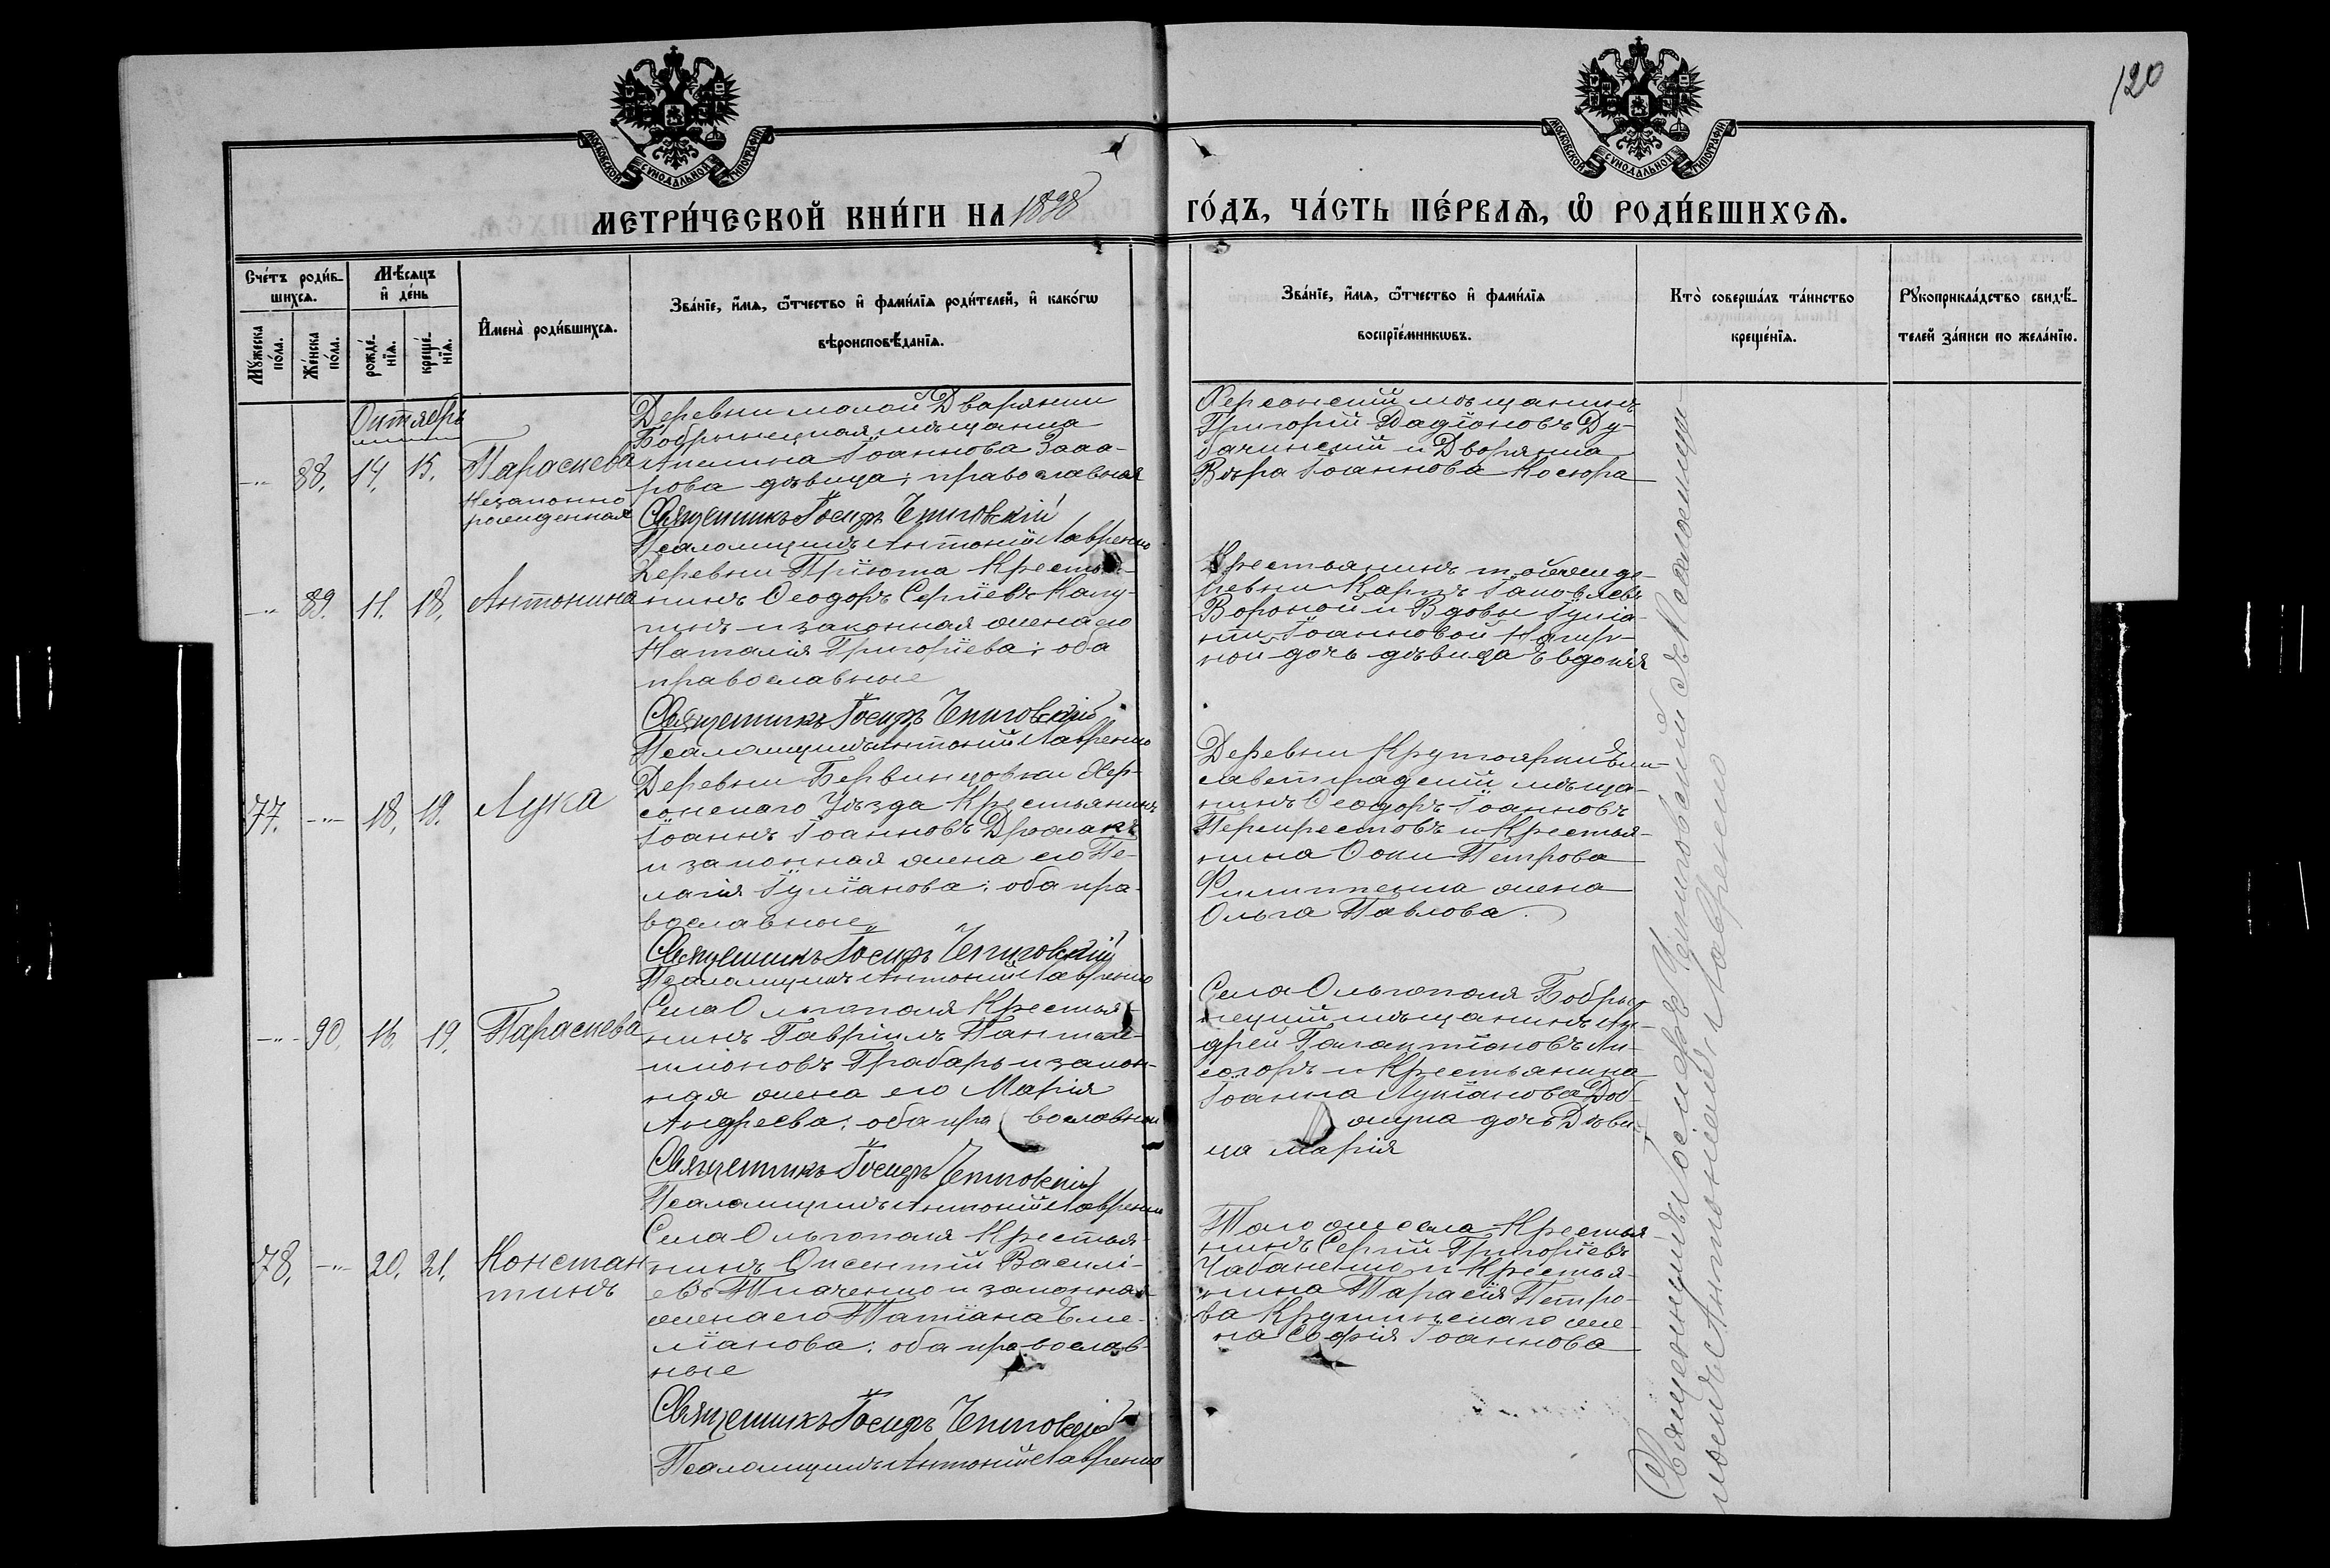 120
МОСКОВСКОЙ СѴНОДАЛЬНОЙ ТИПОГРАФІИ.
МОСКОВСКОЙ СѴНОДАЛЬНОЙ ТИПОГРАФІИ.
МЕТРИ́ЧЕСКОЙ КНИ́ГИ НА 1898
ГО́ДЪ, ЧА́СТЬ ПЕ́РВАѦ, Ѡ҆ РОДИ́ВШИХСѦ.
Сче́тъ роди́в-
шихсѧ.
Мꙋ́жеска по́ла.
Же́нска по́ла.
Мѣ́сѧцъ
и҆ де́нь
рожде́-
нїѧ.
креще́-
нїѧ.
И҆мена̀ роди́вшихсѧ.
Зва́нїе, и҆́мѧ, ѻ҆́тчество и҆ фами́лїѧ роди́телей, и҆ како́гѡ
вѣроисповѣ́данїѧ.
Зва́нїе, и҆́мѧ, ѻ҆́тчество и҆ фами́лїѧ
воспрїе́мникѡвъ.
Кто̀ соверша́лъ та́инство
креще́нїѧ.
Рꙋкоприкла́дство свидѣ́-
телей за́писи по жела́нїю.
Октябрь
-"- 88. 14. 15. Параскева
Незаконно
рожденная
Деревни
Бобринецкая мѣщанка
Акилина Іоаннова
рова дѣвица; православная
Священникъ Іосифъ Чепиговскій
Псаломщикъ Антоній Лавренко
Херсонскій мѣщанинъ
Григорій Ду-
бачинскій и Дворянка
Вѣра Іоаннова Косюра
-"- 89. 11. 18. Антонина
Деревни Пріюта Крестья-
нинъ Ѳеодоръ Сергіевъ Капу-
и законная жена его
Наталія Григоріева; оба
православные
Священникъ Іосифъ Чепиговскій
Псаломщикъ Антоній Лавренко
Крестьянинъ той же де-
ревни Карпъ Іаковлевъ
Вороной и Вдовы
Іоанновой
ной дочь дѣвица Евдокія
77. -"- 18. 19. Лука
Деревни Хер-
сонскаго Уѣзда Крестьянинъ
Іоаннъ Іоанновъ
и законная жена его Пе-
лагія оба пра-
вославные
Священникъ Іосифъ Чепиговскій
Псаломщикъ Антоній Лавренко
Деревни Крутоярки Ели-
саветградскій мѣща-
нинъ Ѳеодоръ Іоанновъ
Перехрестовъ и Крестья-
нина Ѳоки Петрова
жена
Ольга Павлова.
-"- 90. 16. 19. Параскева
Села Ольгополя Крестья-
нинъ Гавріилъ Пантеле-
имоновъ Грабарь и закон-
ная жена его Марія
Андреева; оба православные
Священникъ Іосифъ Чепиговскій
Псаломщикъ Антоній Лавренко
Села Ольгополя Бобри-
нецкій мѣщанинъ Ан-
дрей Галактіоновъ Ли-
согоръ и Крестьянина
Іоанна Лукіанова
дочь Дѣви-
ца Марія
78. -"- 20. 21. Констан
тинъ
Села Ольгополя Крестья-
нинъ Василі-
евъ Ткаченко и законная
жена его Татіана Еме-
ліанова; оба православ-
ные
Священникъ Іосифъ Чепиговскій
Псаломщикъ Антоній Лавренко
Того же села Крестья-
нинъ Сергій Григоріевъ
Чабаненко и Крестья-
нина Тарасія Петро-
ва же-
на Софія Іоаннова
Священникъ Іосифъ Чепиговскій съ Псаломщи-
комъ Антоніемъ Лавренко